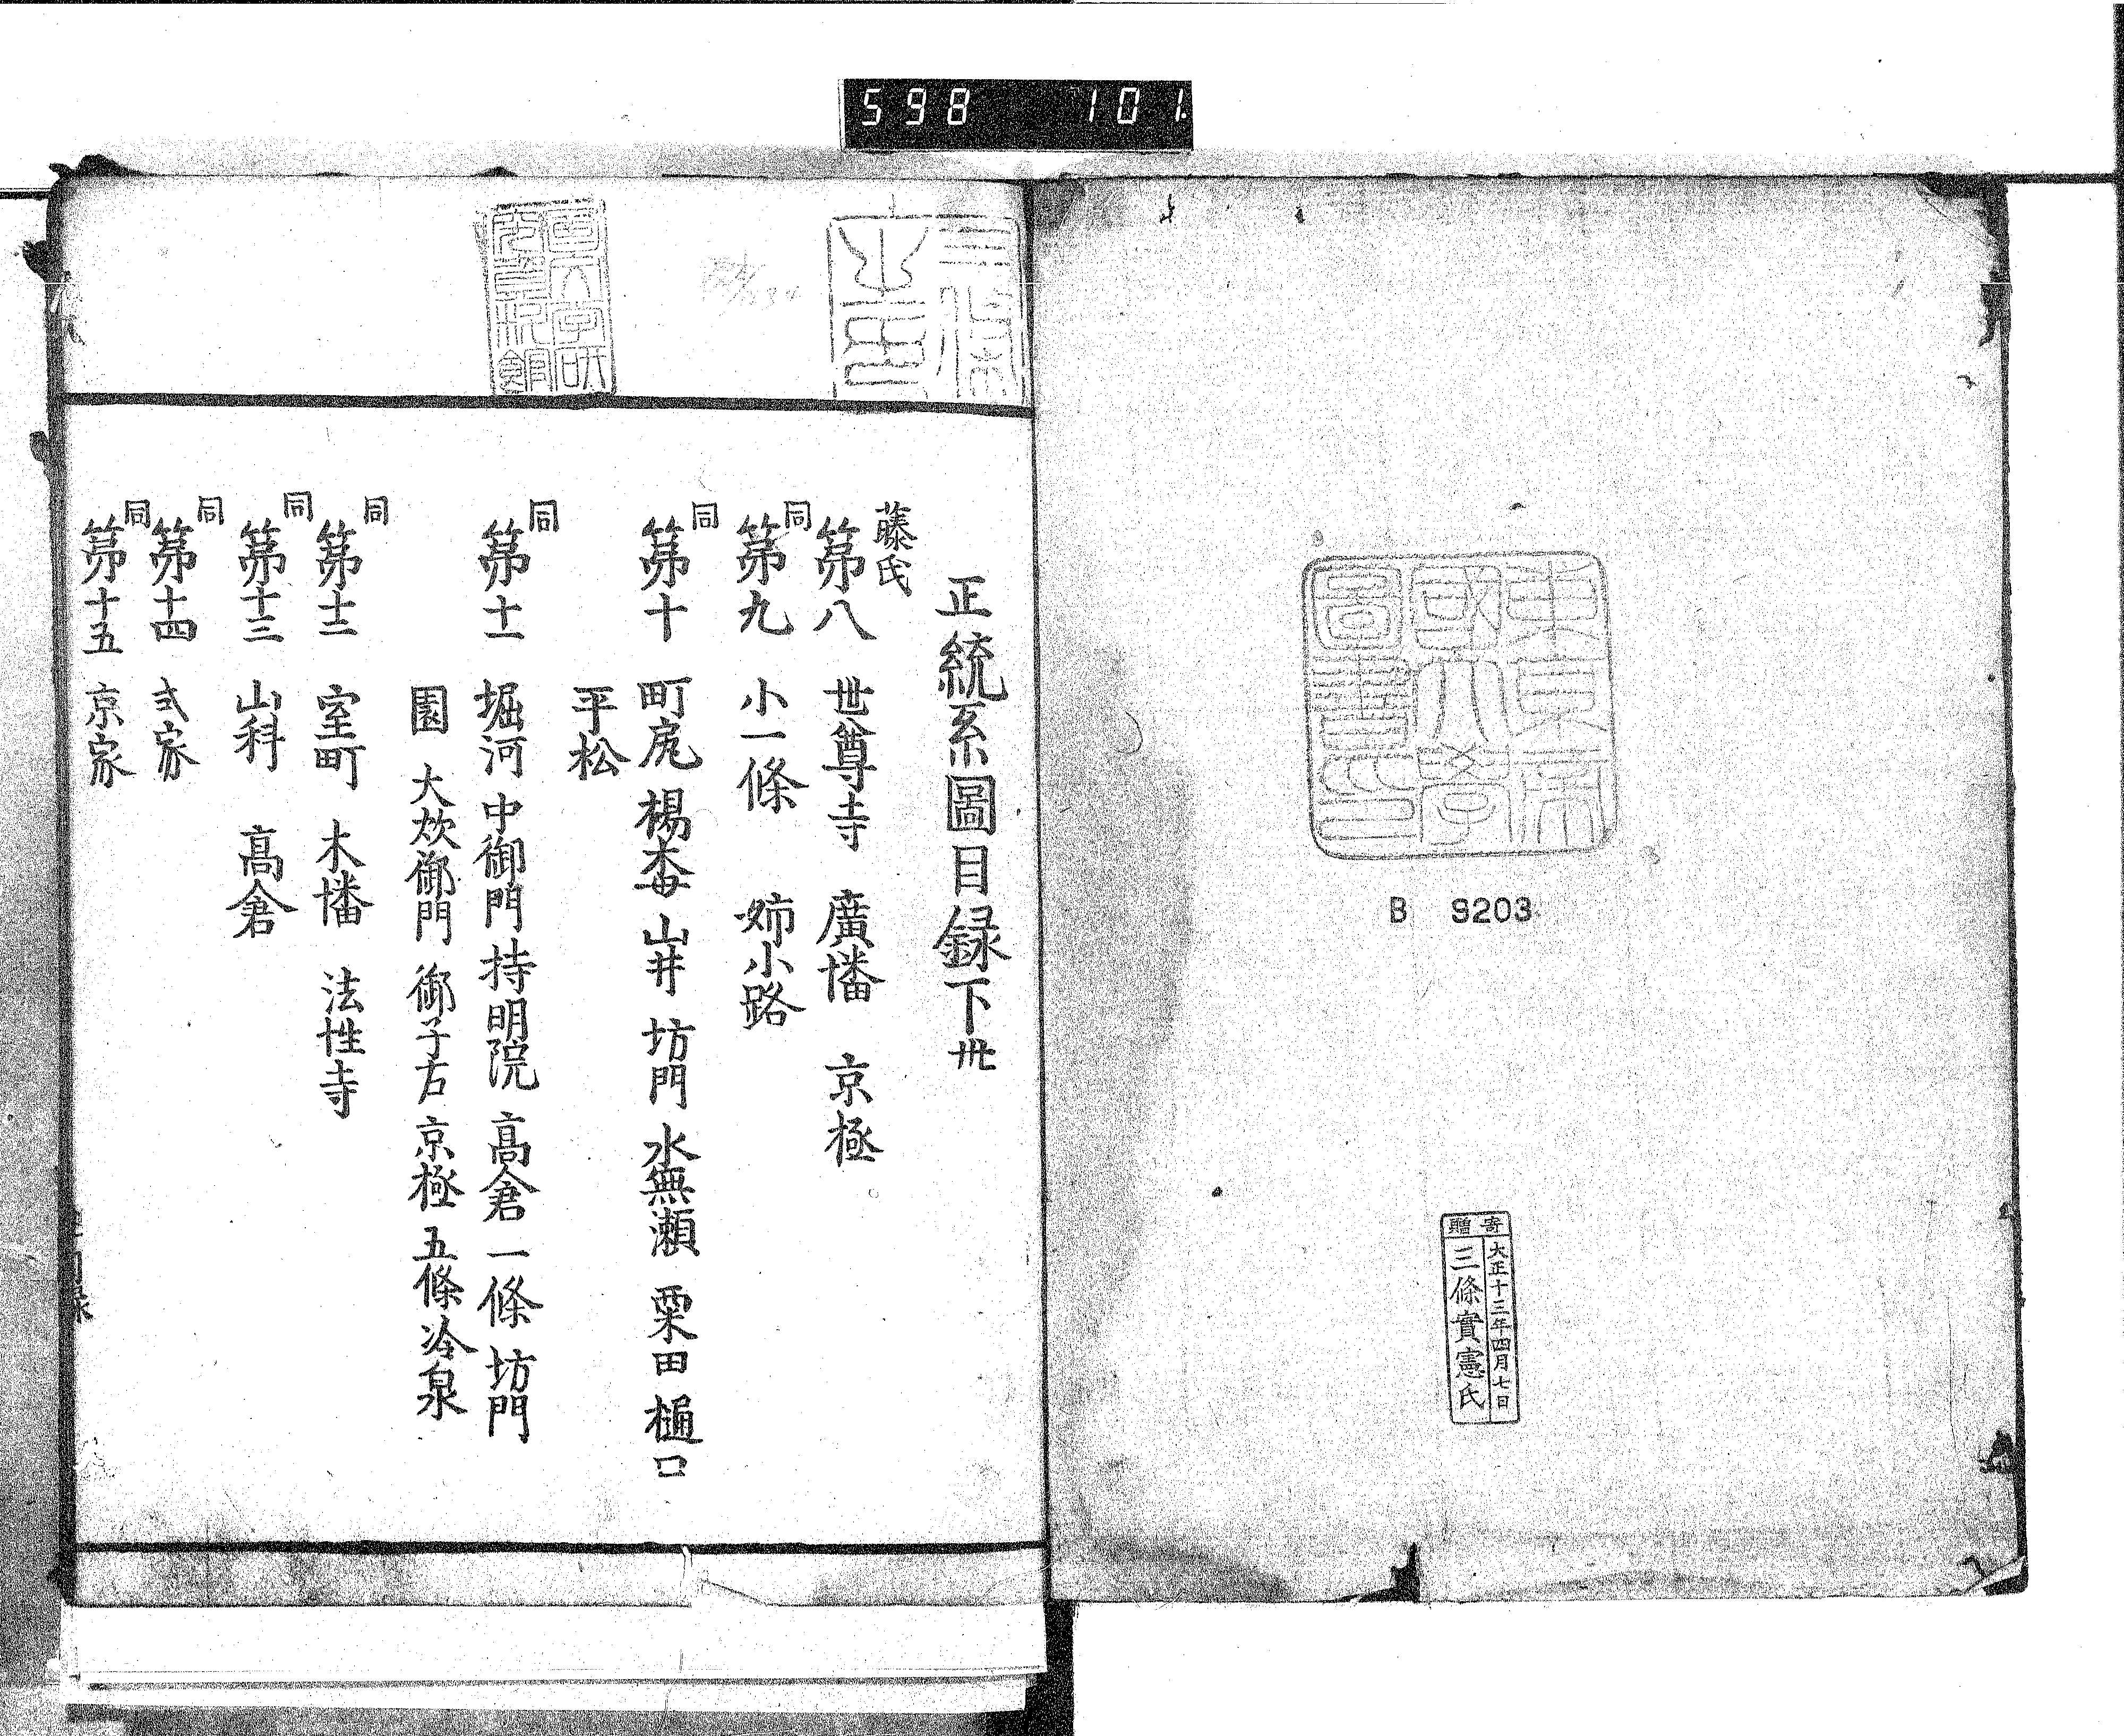 598 101
東京帝
國大學
圖書之印
B 9203
寄贈
大正十三年四月七日
三條實憲氏
三條
正統系圖目録下卅
藤氏
第八 世尊寺 廣幡 京極
同
第九 小一條 姉小路
同
第十 町尻 楊梅 山井 坊門 水無瀬 粟田 樋口
平松
同
第十一 堀河 中御門 持明院 高倉 一條 坊門
園 大炊御門 御子右 京極 五條 冷泉
同
第十二 室町 木幡 法性寺
同
第十三 山科 高倉
同
第十四 式家
同
第十五 京家